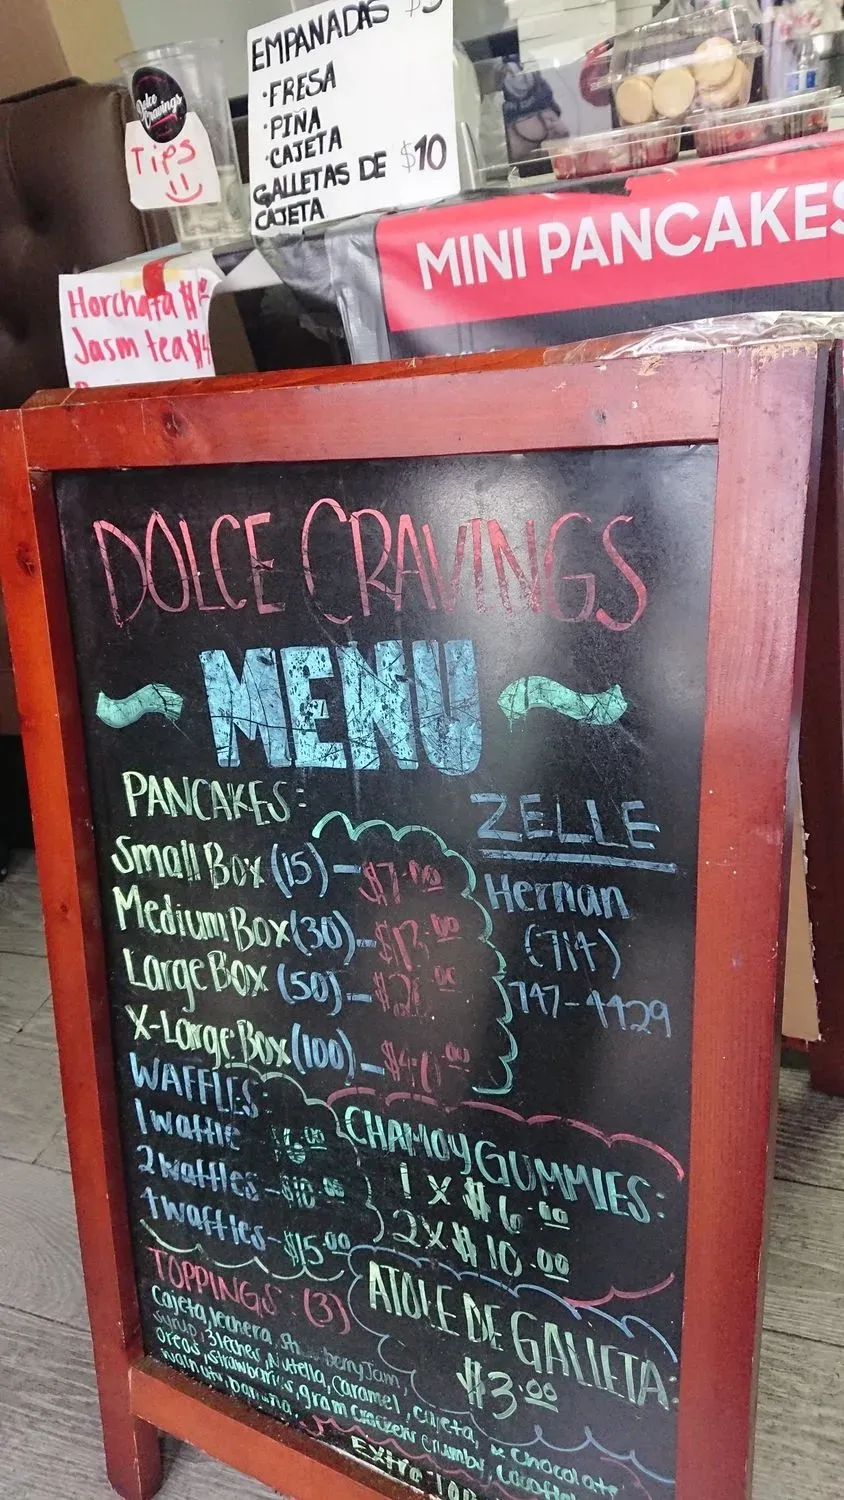 EMPANADAS $3
·FRESA
·PIÑA
·CAJETA
GALLETAS DE $10
CAJETA
Dolce
Cravings
Tips
MINI PANCAKES
Horchata
Jasm tea $4
DOLCE CRAVINGS
~ MENU ~
PANCAKES:
Small Box (15) - $7.00
Medium Box (30) - $13.00
Large Box (50) -
X-Large Box (100) - $40.00
ZELLE
Hernan
(714)
747-4429
WAFFLES:
1 waffle $6.00
2 waffles - $10.00
4 waffles - $15.00
CHAMOY GUMMIES:
1 X $6.00
2 X $10.00
TOPPINGS: (3)
Cajeta, lechera, berry Jam,
syrup, 3 leches, Nutella, caramel, cajeta, chocolate
Oreos, strawberries, gram crackers crumbs,
walnuts, banana.
Extra
ATOLE DE GALLETA:
$3.00